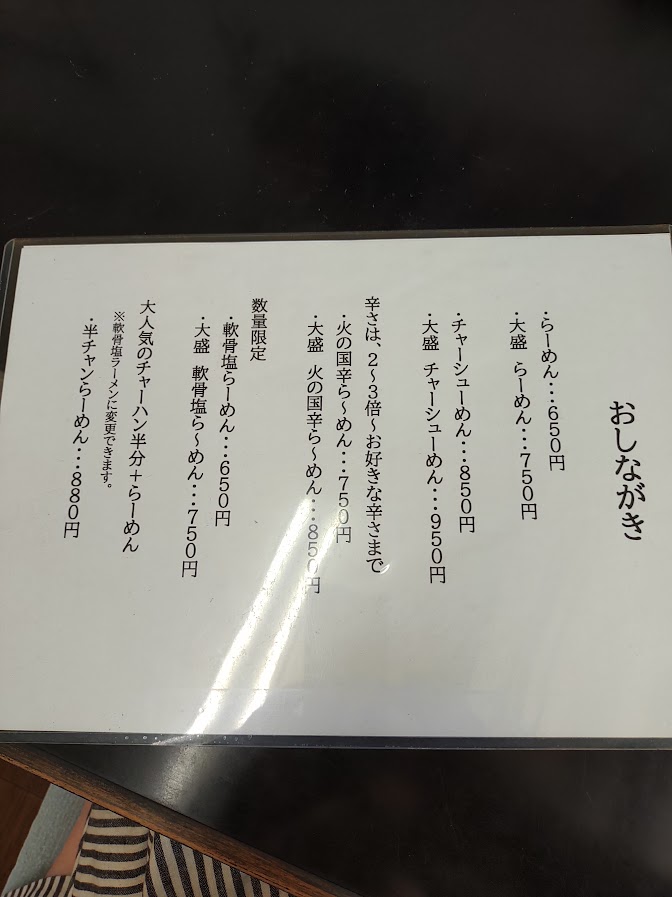 おしながき
・らーめん・・・６５０円
・大盛　らーめん・・・７５０円
・チャーシューめん・・・８５０円
・大盛　チャーシューめん・・・９５０円
辛さは、２～３倍～お好きな辛さまで
・火の国辛ら～めん・・・７５０円
・大盛　火の国辛ら～めん・・・８５０円
数量限定
・軟骨塩らーめん・・・６５０円
・大盛　軟骨塩ら～めん・・・７５０円
大人気のチャーハン半分＋らーめん
※軟骨塩ラーメンに変更できます。
・半チャンらーめん・・・８８０円